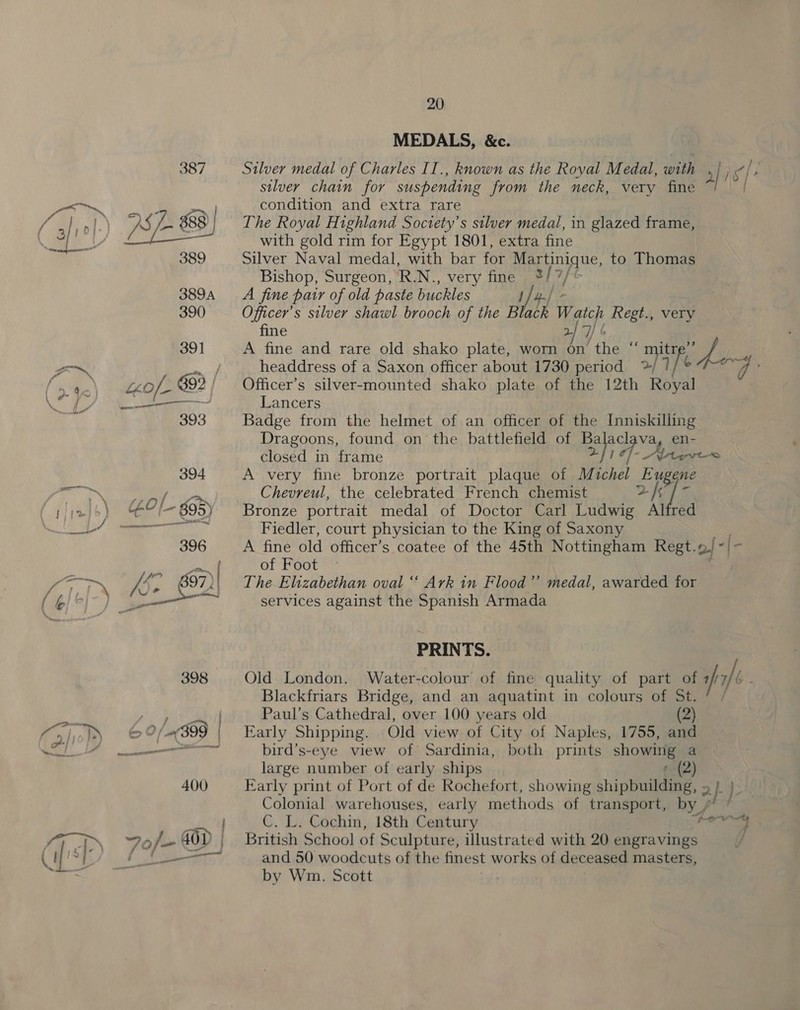 20
MEDALS, &c.
387 Silver medal of Charles II., known as the Royal Medal, with
silver chain for suspending from the neck, very fine
condition and extra rare
75/- 888 The Royal Highland Society's silver medal, in glazed frame,
with gold rim for Egypt 1801, extra fine
389 Silver Naval medal, with bar for Martinique, to Thomas
Bishop, Surgeon, R.N., very fine
389A A fine pair of old paste buckles
390 Officer's silver shawl brooch of the Black Watch Regt., very
fine
391 A fine and rare old shako plate, worn on the “ mitre”
headdress of a Saxon officer about 1730 period
40/- 392 Officer's silver-mounted shako plate of the 12th Royal
Lancers
393 Badge from the helmet of an officer of the Inniskilling
Dragoons, found on the battlefield of Balaclava, en-
closed in frame
394 A very fine bronze portrait plaque of Michel Eugene
Chevreul, the celebrated French chemist
40/- 395 Bronze portrait medal of Doctor Carl Ludwig Alfred
Fiedler, court physician to the King of Saxony
396 A fine old officer's coatee of the 45th Nottingham Regt.
of Foot
397 The Elizabethan oval “ Ark in Flood ” medal, awarded for
services against the Spanish Armada
PRINTS.
398 Old London. Water-colour of fine quality of part of
Blackfriars Bridge, and an aquatint in colours of St.
Paul's Cathedral, over 100 years old (2)
60/- 399 Early Shipping. Old view of City of Naples, 1755, and
bird's-eye view of Sardinia, both prints showing a
large number of early ships (2)
400 Early print of Port of de Rochefort, showing shipbuilding,
Colonial warehouses, early methods of transport, by
C. L. Cochin, 18th Century
70/- 401 British School of Sculpture, illustrated with 20 engravings
and 50 woodcuts of the finest works of deceased masters,
by Wm. Scott